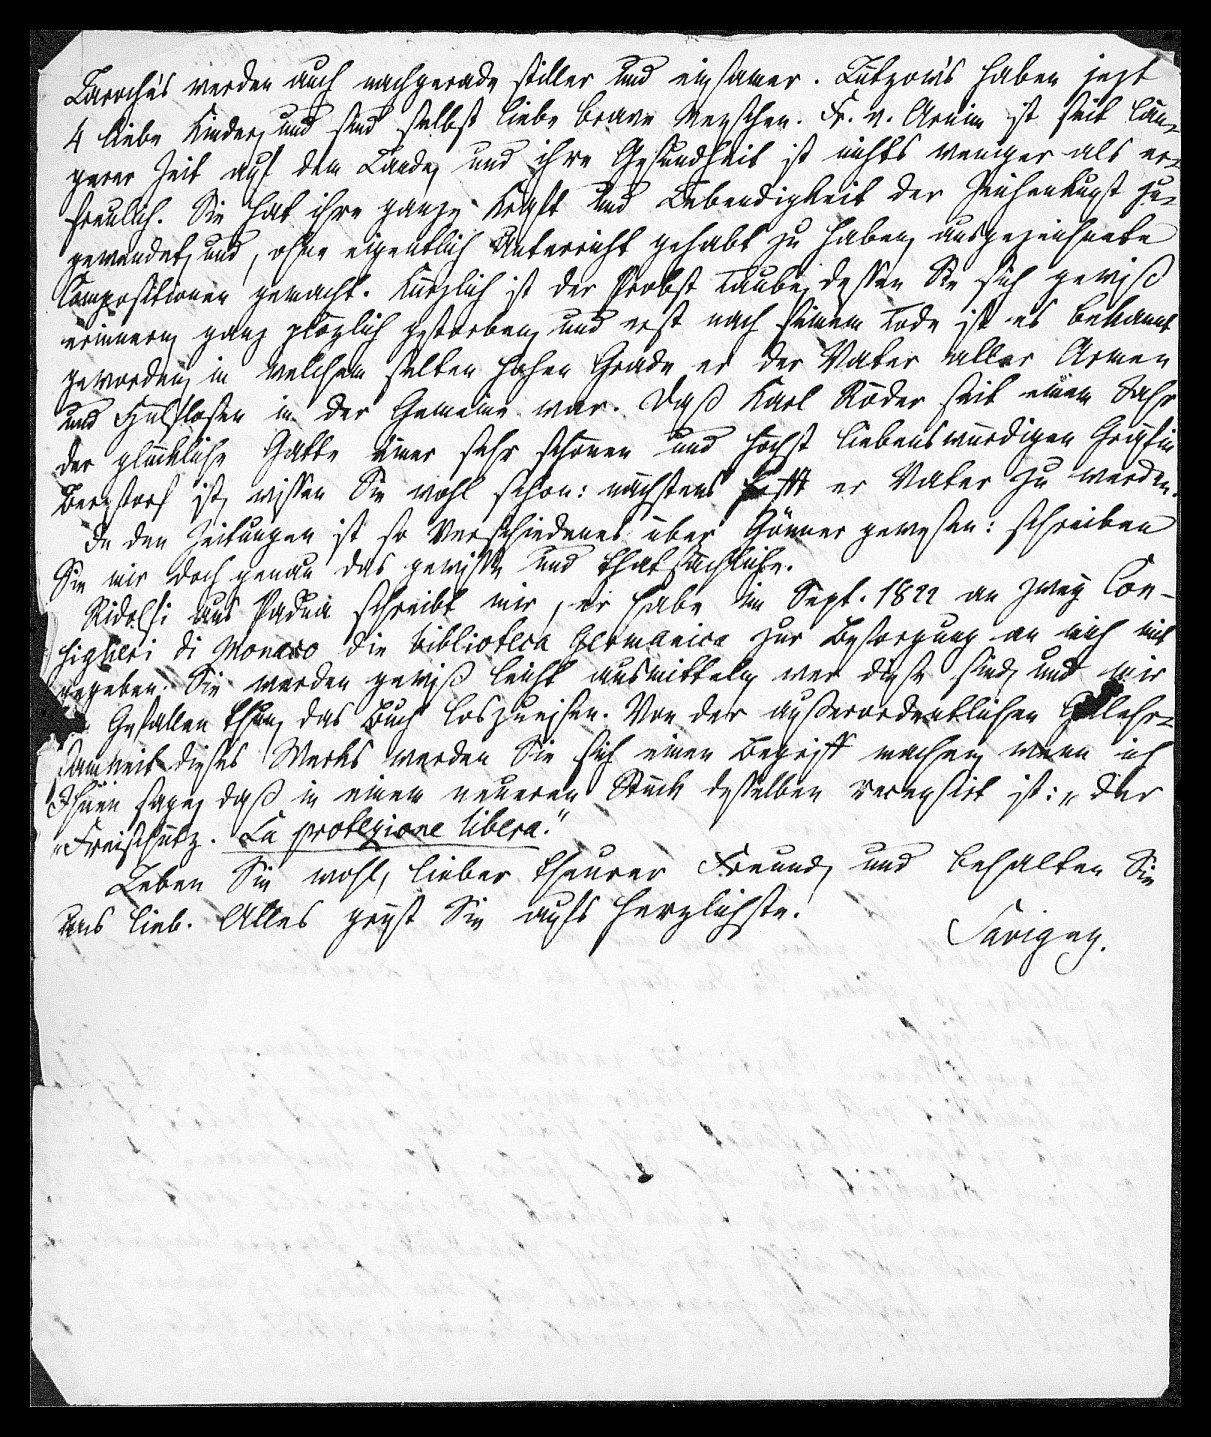 Laroche's werden auch nachgerade stiller und einsamer. Lützow's haben jezt
4 liebe Kinder, und sind selbst liebe brave Menschen. Fr. v. Arnim ist seit län-
gerer Zeit auf dem Lande, und ihre Gesundheit ist nichts weniger als er-
freulich. Sie hat ihre ganze Kraft und Lebendigkeit der Zeichenkunst zu-
gewendet, und, ohne eigentlich Unterricht gehabt zu haben, ausgezeichnete
Compositionen gemacht. Kürzlich ist der Probst Taube, dessen Sie sich gewiß
erinnern, ganz plözlich gestorben, und erst nach seinem Tode ist es bekannt
geworden, in welchem selten hohen Grade er der Vater aller Armen
und Hülflosen in der Gemeine war. Daß Karl Röder seit einem Jahr
der glückliche Gatte einer sehr schönen und höchst liebenswürdigen Gräfin
Bernstorf ist, wissen Sie wohl schon: nächstens hofft er Vater zu werden.
In den Zeitungen ist so Verschiedenes über Gönner gewesen: schreiben
Sie mir doch genau das gewisse und thatsächliche.
Ridolfi aus Padua schreibt mir, er habe im Sept. 1822 an zwey Con-
siglieri di Monaco die biblioteca Germanica zur Besorgung an mich mit
gegeben. Sie werden gewiß leicht ausmitteln, wer diese sind, und mir
Gefallen thun, das Buch loszueisen. Von der außerordentlichen Gelehr-
samkeit dieses Werks werden Sie sich einen Begriff machen, wenn ich
Ihnen sage, daß in einem neueren Stück desselben recensirt ist: „der
„Freischütz. La protezione libera."
Leben Sie wohl, lieber theurer Freund, und behalten Sie
uns lieb. Alles grüst Sie aufs herzlichste.
Savigny.